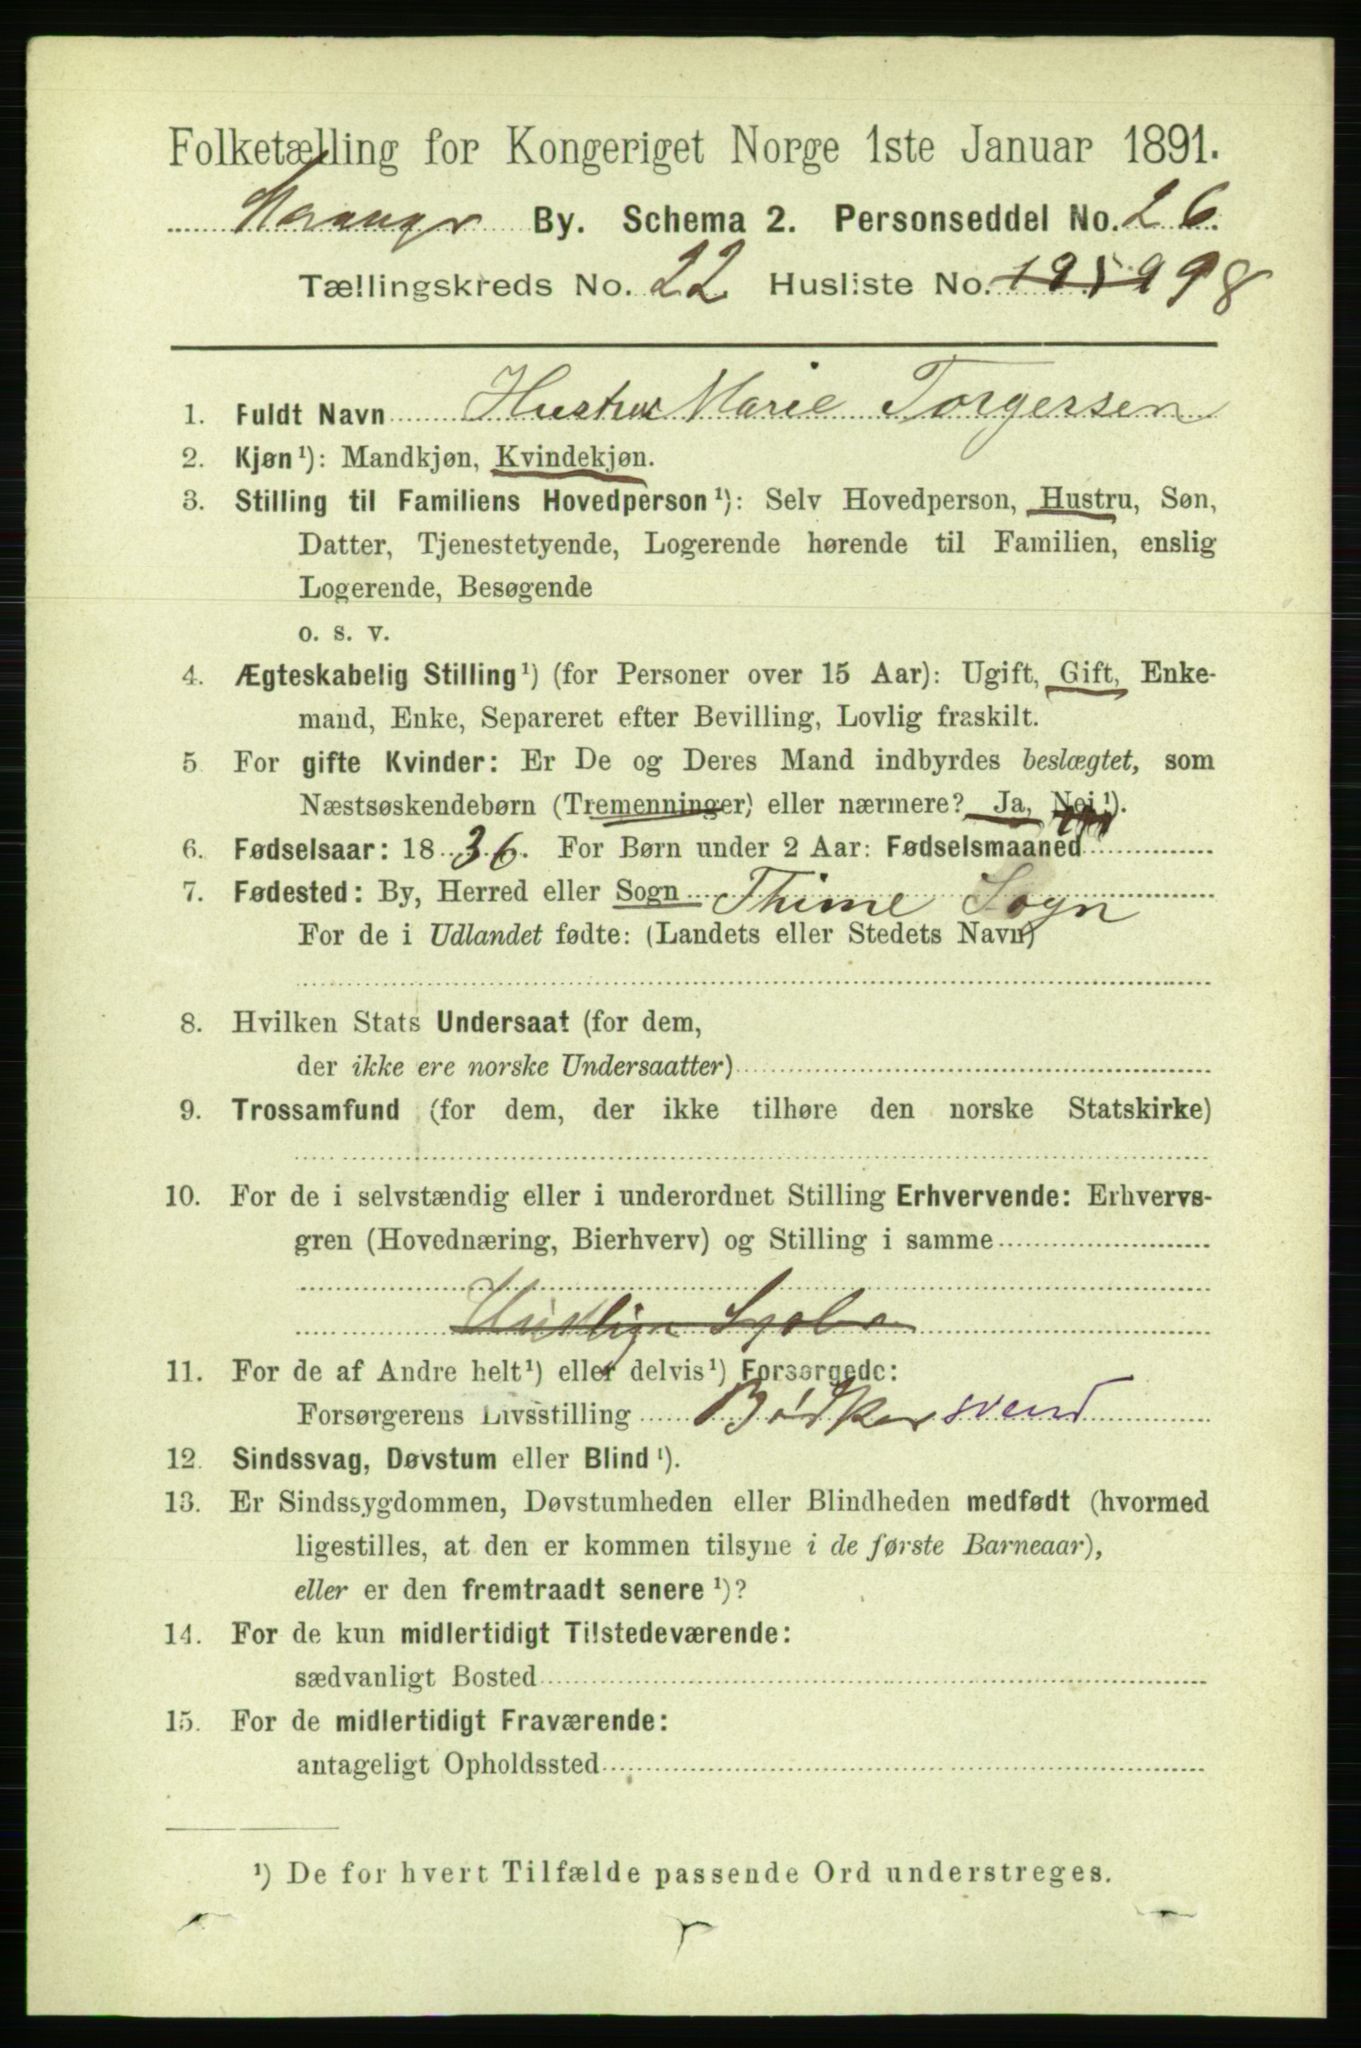 Folketælling for Kongeriget Norge 1ste Januar 1891.
By. Schema 2. Personseddel No. 26.
Tællingskreds No. 22 Husliste No. 98
1. Fuldt Navn Hustru Marie Torgersen
2. Kjøn¹): Mandkjøn, Kvindekjøn.
3. Stilling til Familiens Hovedperson¹): Selv Hovedperson, Hustru, Søn,
Datter, Tjenestetyende, Logerende hørende til Familien, enslig
Logerende, Besøgende
o. s. v.
4. Ægteskabelig Stilling¹) (for Personer over 15 Aar): Ugift, Gift, Enke-
mand, Enke, Separeret efter Bevilling, Lovlig fraskilt.
5 For gifte Kvinder: Er De og Deres Mand indbyrdes beslægtet, som
Næstsøskendebørn (Tremenninger) eller nærmere? Ja, Nei¹).
6. Fødselsaar: 1836. For Børn under 2 Aar: Fødselsmaaned
7. Fødested: By, Herred eller Sogn Thime Sogn
For de i Udlandet fødte: (Landets eller Stedets Navn)
8. Hvilken Stats Undersaat (for dem,
der ikke ere norske Undersaatter)
9. Trossamfund (for dem, der ikke tilhøre den norske Statskirke)
10. For de i selvstændig eller i underordnet Stilling Erhvervende: Erhvervs-
gren (Hovednæring, Bierhverv) og Stilling i samme
11. For de af Andre helt¹) eller delvis¹) Forsørgede:
Forsørgerens Livsstilling Bødker svend
12. Sindssvag, Døvstum eller Blind¹).
13. Er Sindssygdommen, Døvstumheden eller Blindheden medfødt (hvormed
ligestilles, at den er kommen tilsyne i de første Barneaar),
eller er den fremtraadt senere¹)?
14. For de kun midlertidigt Tilstedeværende:
sædvanligt Bosted
15. For de midlertidigt Fraværende:
antageligt Opholdssted
¹) De for hvert Tilfælde passende Ord understreges.